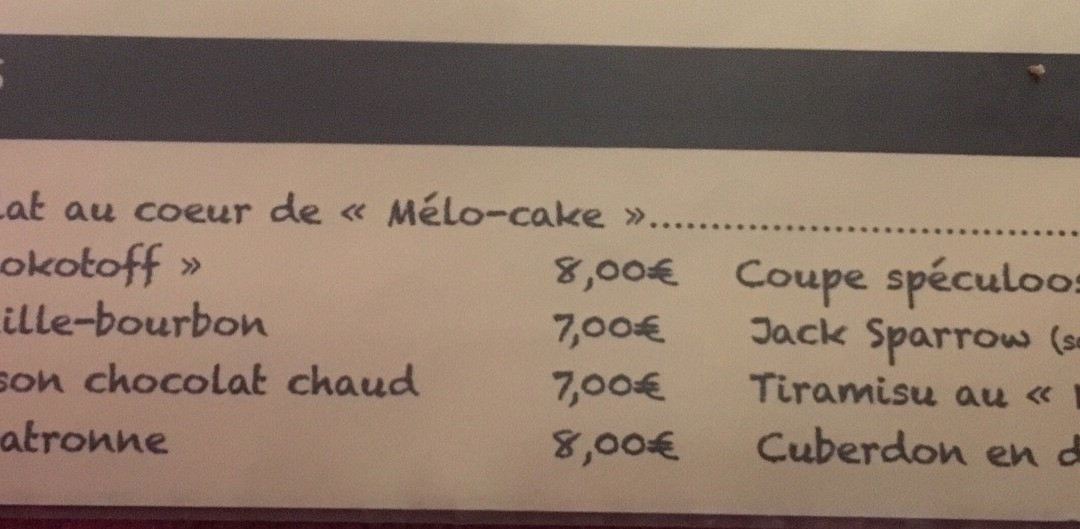 lat au coeur de « Mélo-cake »..........................................
okotoff » 8,00€ Coupe spéculoos
ille-bourbon 7,00€ Jack Sparrow (s
son chocolat chaud 7,00€ Tiramisu au «
atronne 8,00€ Cuberdon en d